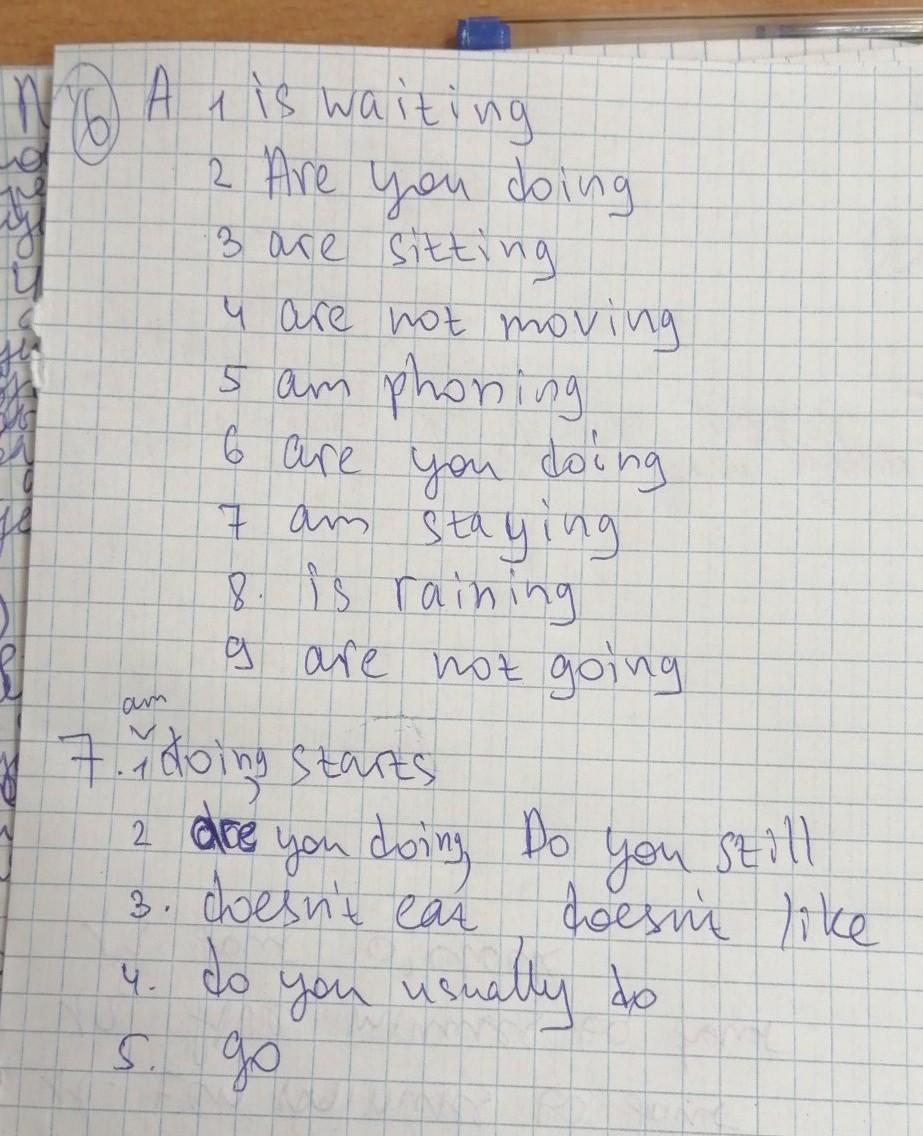 6 A 1 is waiting
2 Are you doing
3 are sitting
4 are not moving
5 am phoning
6 are you doing
7 am staying
8. is raining
9 are not going
am
7. 1 doing, starts
2 are you doing, Do you still
3. doesn't eat, doesn't like
4. do you usually do
5. go